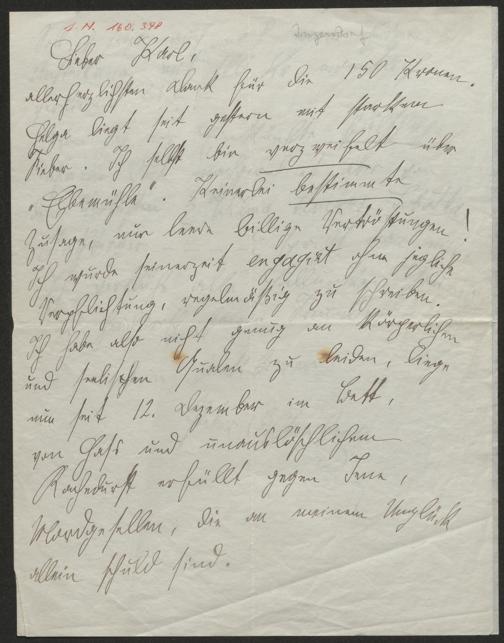 I. N. 160.398
Inzersdorf
Lieber Karl,
allerherzlichsten Dank für die 150 Kronen.
Helga liegt seit gestern mit starkem
Fieber. Ich selbst bin verzweifelt über
"Elbemühle". Keinerlei bestimmte
Zusage, nur leere billige Vertröstungen!
Ich wurde seinerzeit engagirt ohne jegliche
Verpflichtung, regelmäßig zu schreiben.
Ich habe also nicht genug an körperlichen
und seelischen Qualen zu leiden, liege
nun seit 12. Dezember im Bett,
von Hass und unauslöschlichem
Rachedurst erfüllt gegen Jene,
Mordgesellen, die an meinem Unglück
allein schuld sind.